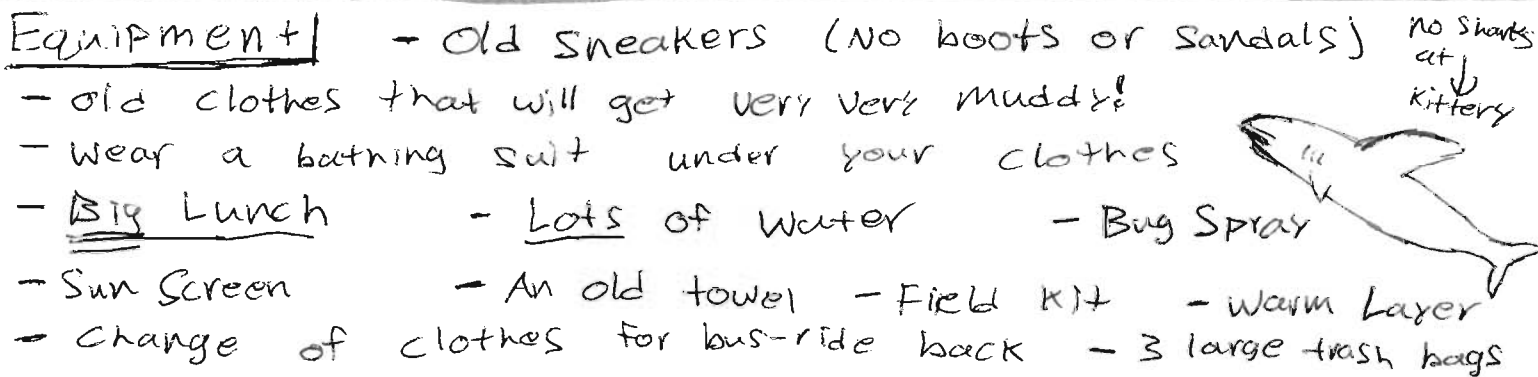 Equipment - Old Sneakers (No boots or Sandals)
no Sharks
at
Kittery
- old clothes that will get very very muddy!
- wear a bathing suit under your clothes
- Big Lunch - Lots of Water - Bug Spray
- Sun Screen - An old towel - Field Kit - Warm Layer
- Change of clothes for bus-ride back - 3 large trash bags